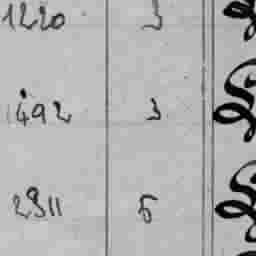 1220 3
1492 3
2811 5